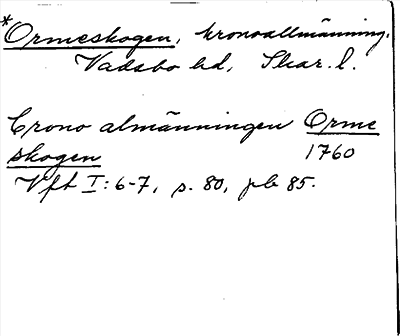 *Ormeskogen, kronoallmänning.
Vadsbo hd, Skar. l.
Crono almänningen Orme
skogen 1760
Vft I: 6-7, s. 80, jfr 85.